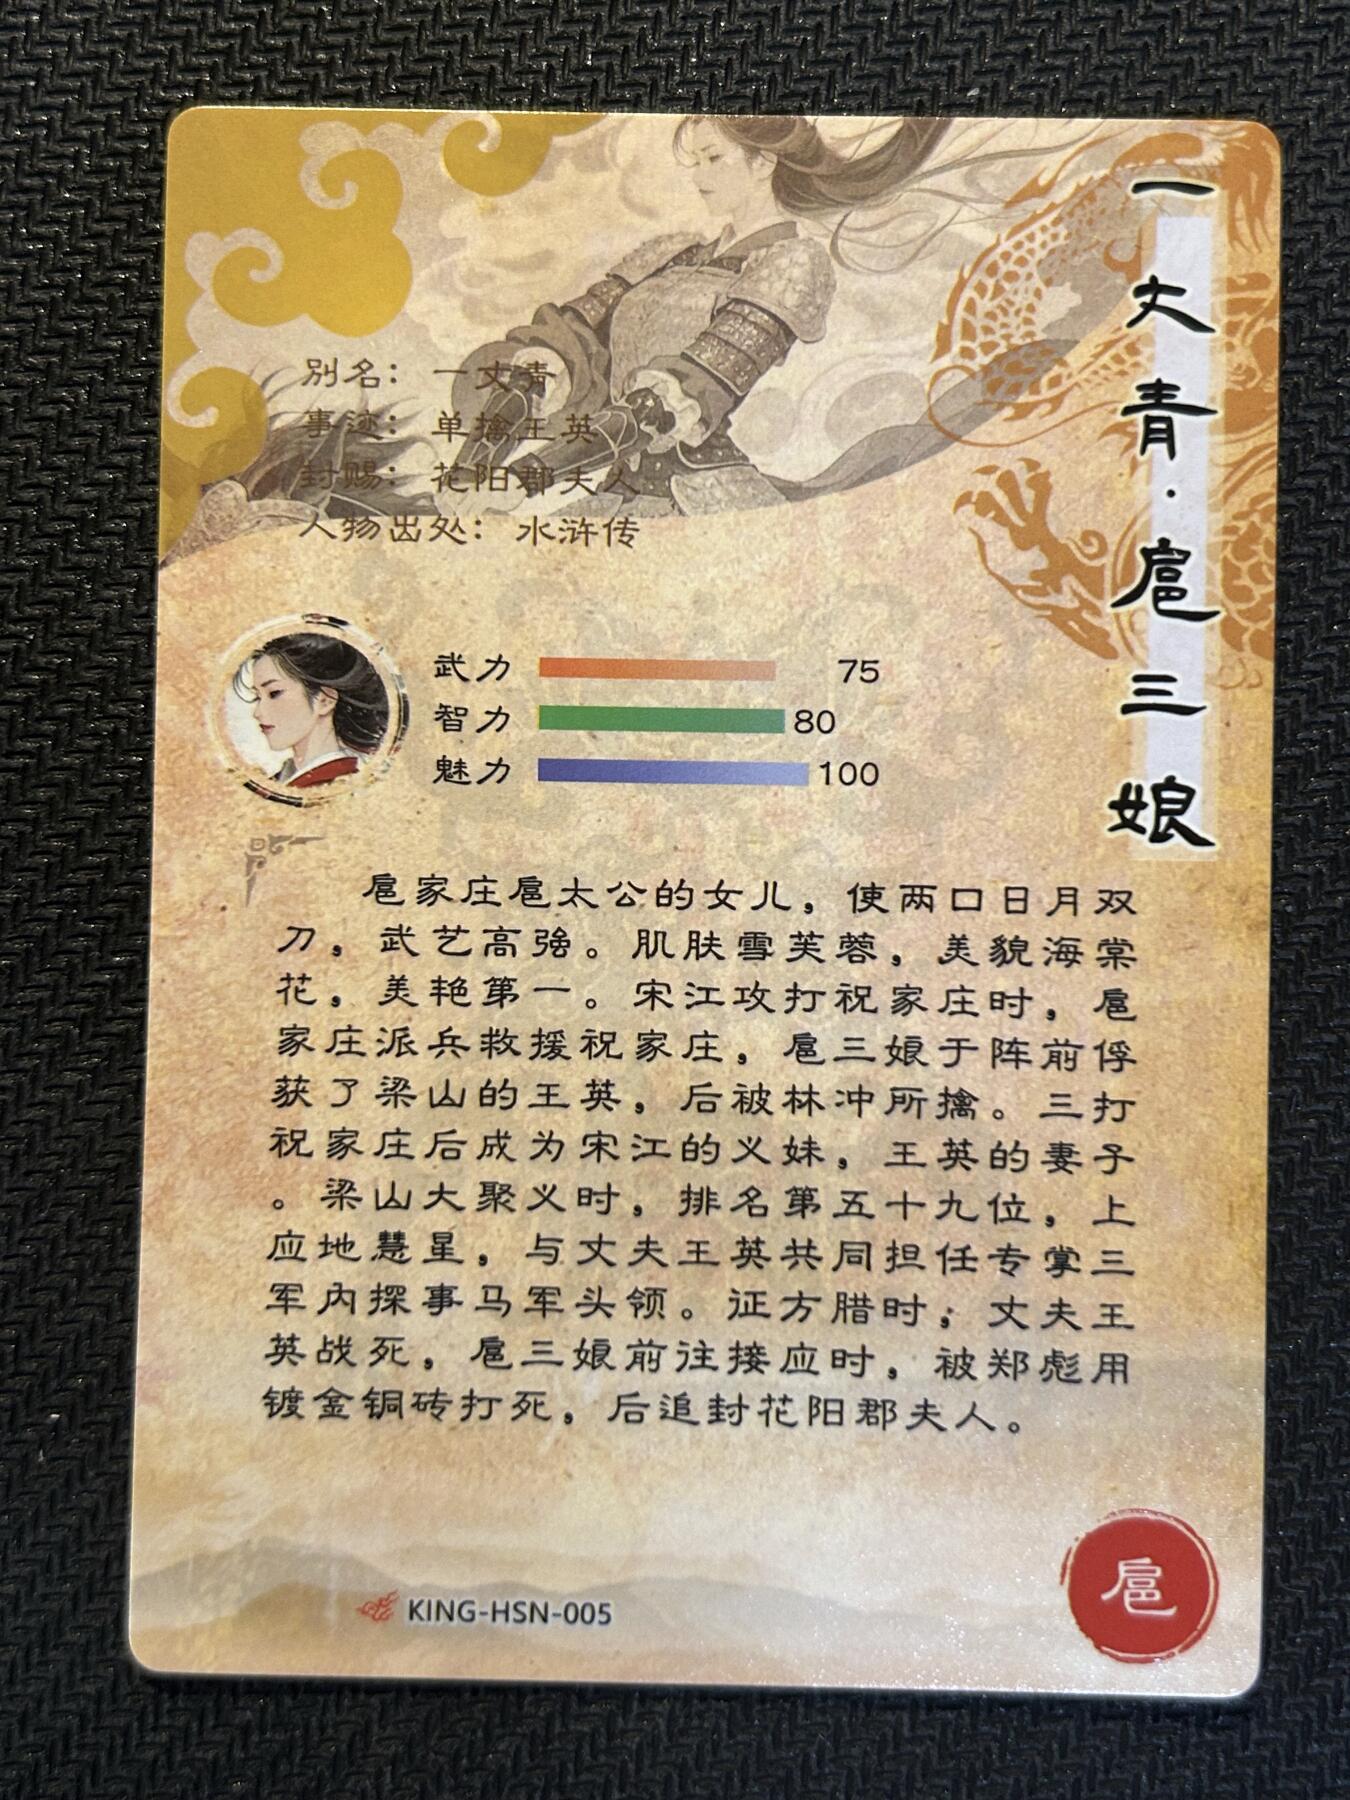 一丈青·扈三娘
別名：一丈青
事迹：单擒王英
封赐：花阳郡夫人
人物出处：水浒传
武力 75
智力 80
魅力 100
扈家庄扈太公的女儿，使两口日月双
刀，武艺高强。肌肤雪芙蓉，美貌海棠
花，美艳第一。宋江攻打祝家庄时，扈
家庄派兵救援祝家庄，扈三娘于阵前俘
获了梁山的王英，后被林冲所擒。三打
祝家庄后成为宋江的义妹，王英的妻子
。梁山大聚义时，排名第五十九位，上
应地慧星，与丈夫王英共同担任专掌三
军内探事马军头领。证方腊时；丈夫王
英战死，扈三娘前往接应时，被郑彪用
镀金铜砖打死，后追封花阳郡夫人。
KING-HSN-005
扈